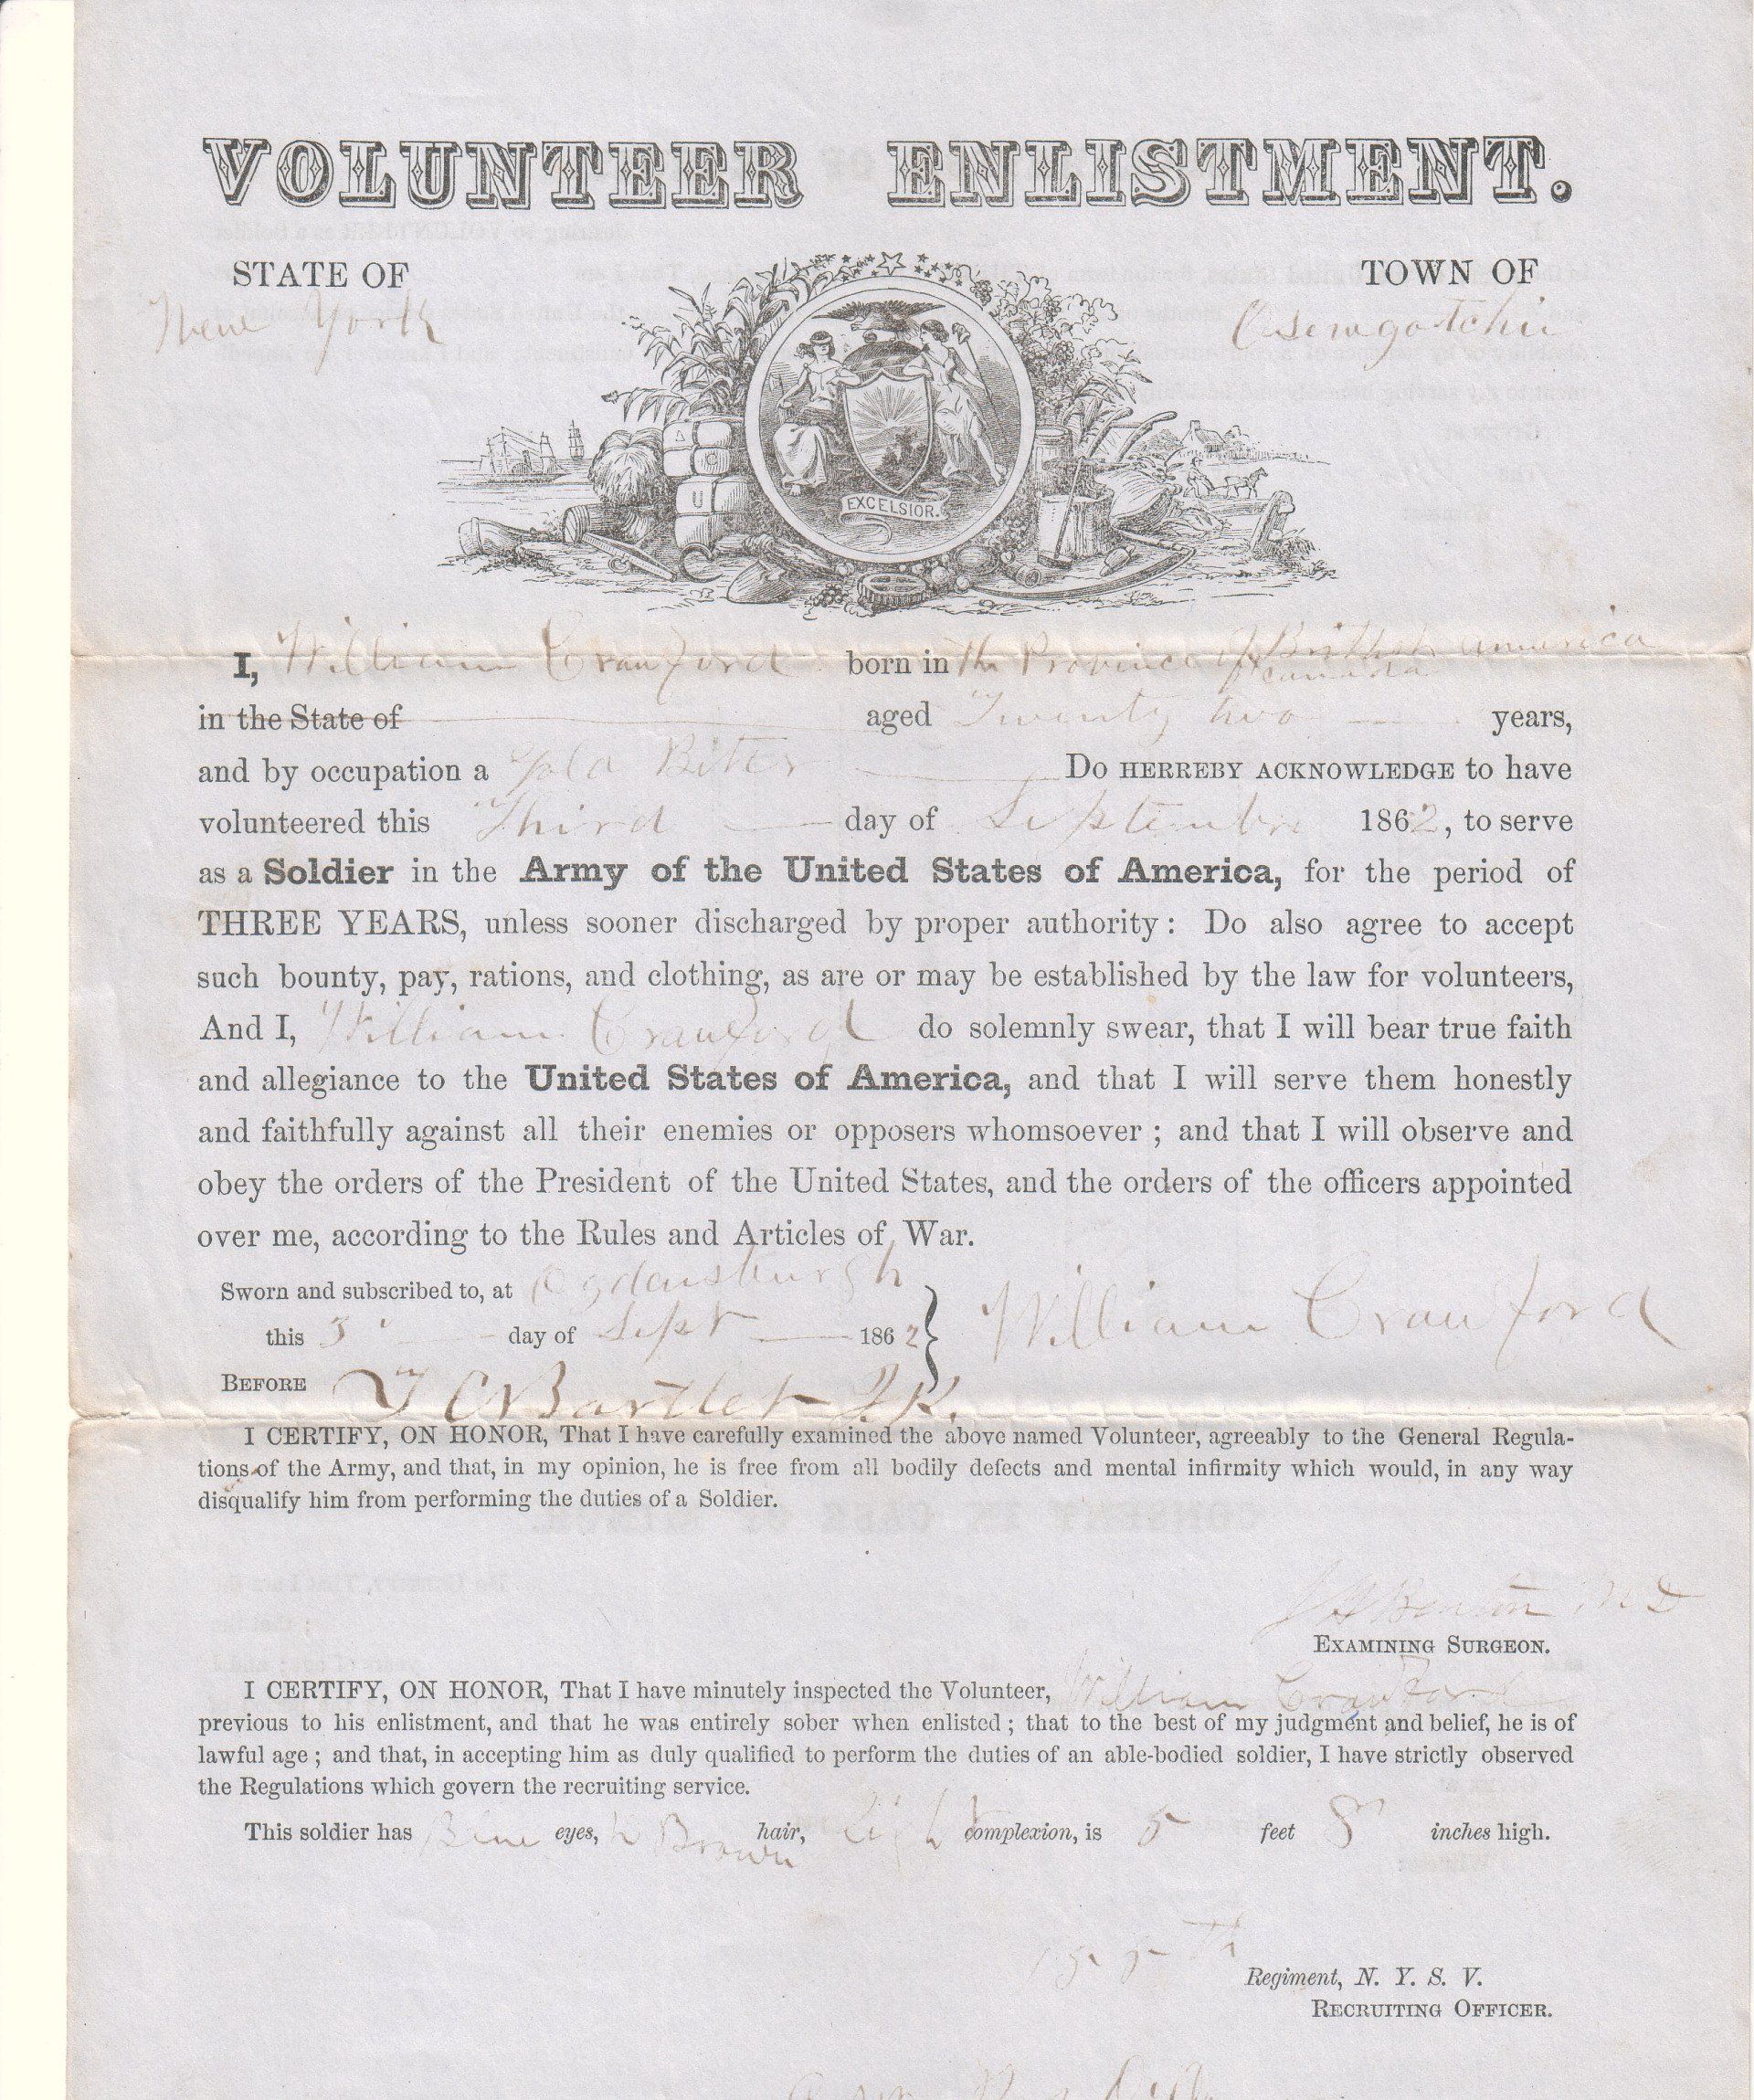 VOLUNTEER ENLISTMENT.
STATE OF
TOWN OF
New York
Oswegotchie
A
C
U
EXCELSIOR.
I, William Crawford born in the Province of British America
Canada
in the State of aged Twenty two years,
and by occupation a Do HERREBY ACKNOWLEDGE to have
volunteered this Third day of September 1862, to serve
as a Soldier in the Army of the United States of America, for the period of
THREE YEARS, unless sooner discharged by proper authority: Do also agree to accept
such bounty, pay, rations, and clothing, as are or may be established by the law for volunteers,
And I, William Crawford do solemnly swear, that I will bear true faith
and allegiance to the United States of America, and that I will serve them honestly
and faithfully against all their enemies or opposers whomsoever; and that I will observe and
obey the orders of the President of the United States, and the orders of the officers appointed
over me, according to the Rules and Articles of War.
Sworn and subscribed to, at Ogdensburgh
this 3 day of Sept 1862
William Crawford
BEFORE T C Bartlet
I CERTIFY, ON HONOR, That I have carefully examined the above named Volunteer, agreeably to the General Regula-
tions of the Army, and that, in my opinion, he is free from all bodily defects and mental infirmity which would, in any way
disqualify him from performing the duties of a Soldier.
Benton M D
EXAMINING SURGEON.
I CERTIFY, ON HONOR, That I have minutely inspected the Volunteer, William Crawford
previous to his enlistment, and that he was entirely sober when enlisted; that to the best of my judgment and belief, he is of
lawful age; and that, in accepting him as duly qualified to perform the duties of an able-bodied soldier, I have strictly observed
the Regulations which govern the recruiting service.
This soldier has Blue eyes, Brown hair, light complexion, is 5 feet 8 inches high.
Regiment, N. Y. S. V.
RECRUITING OFFICER.